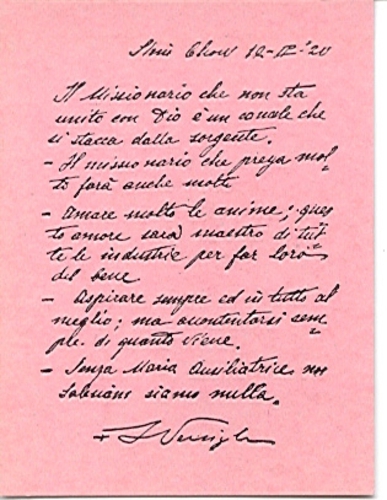 Shiu Chow 12-IX-'20
Il Missionario che non sta
unito con Dio è un canale che
si stacca dalla sorgente.
- Il missionario che prega mol=
to farà anche molto
- Amare molto le anime; ques
to amore sarà maestro di tut=
te le industrie per far loro
del bene
- Aspirare sempre ed in tutto al
meglio; ma accontentarsi sem=
pre di quanto viene.
- Senza Maria Ausiliatrice noi
Salesiani siamo nulla.
+ L Versiglia